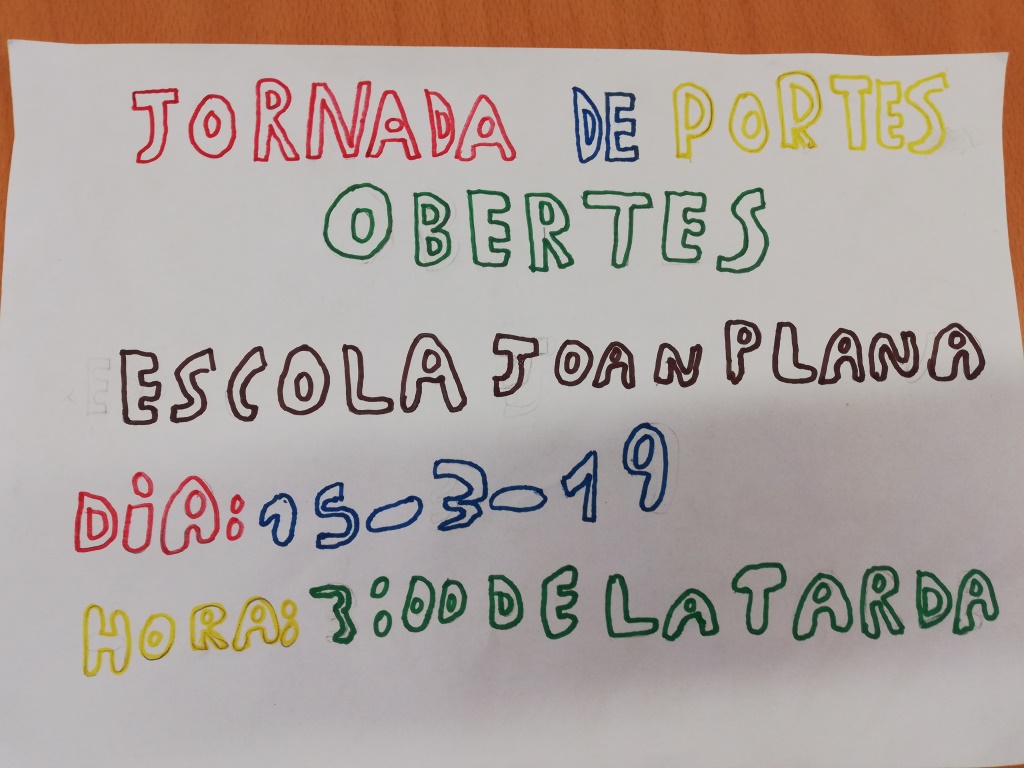 JORNADA DE PORTES
OBERTES
ESCOLA JOAN PLANA
DIA: 15-3-19
HORA: 3:00 DE LA TARDA